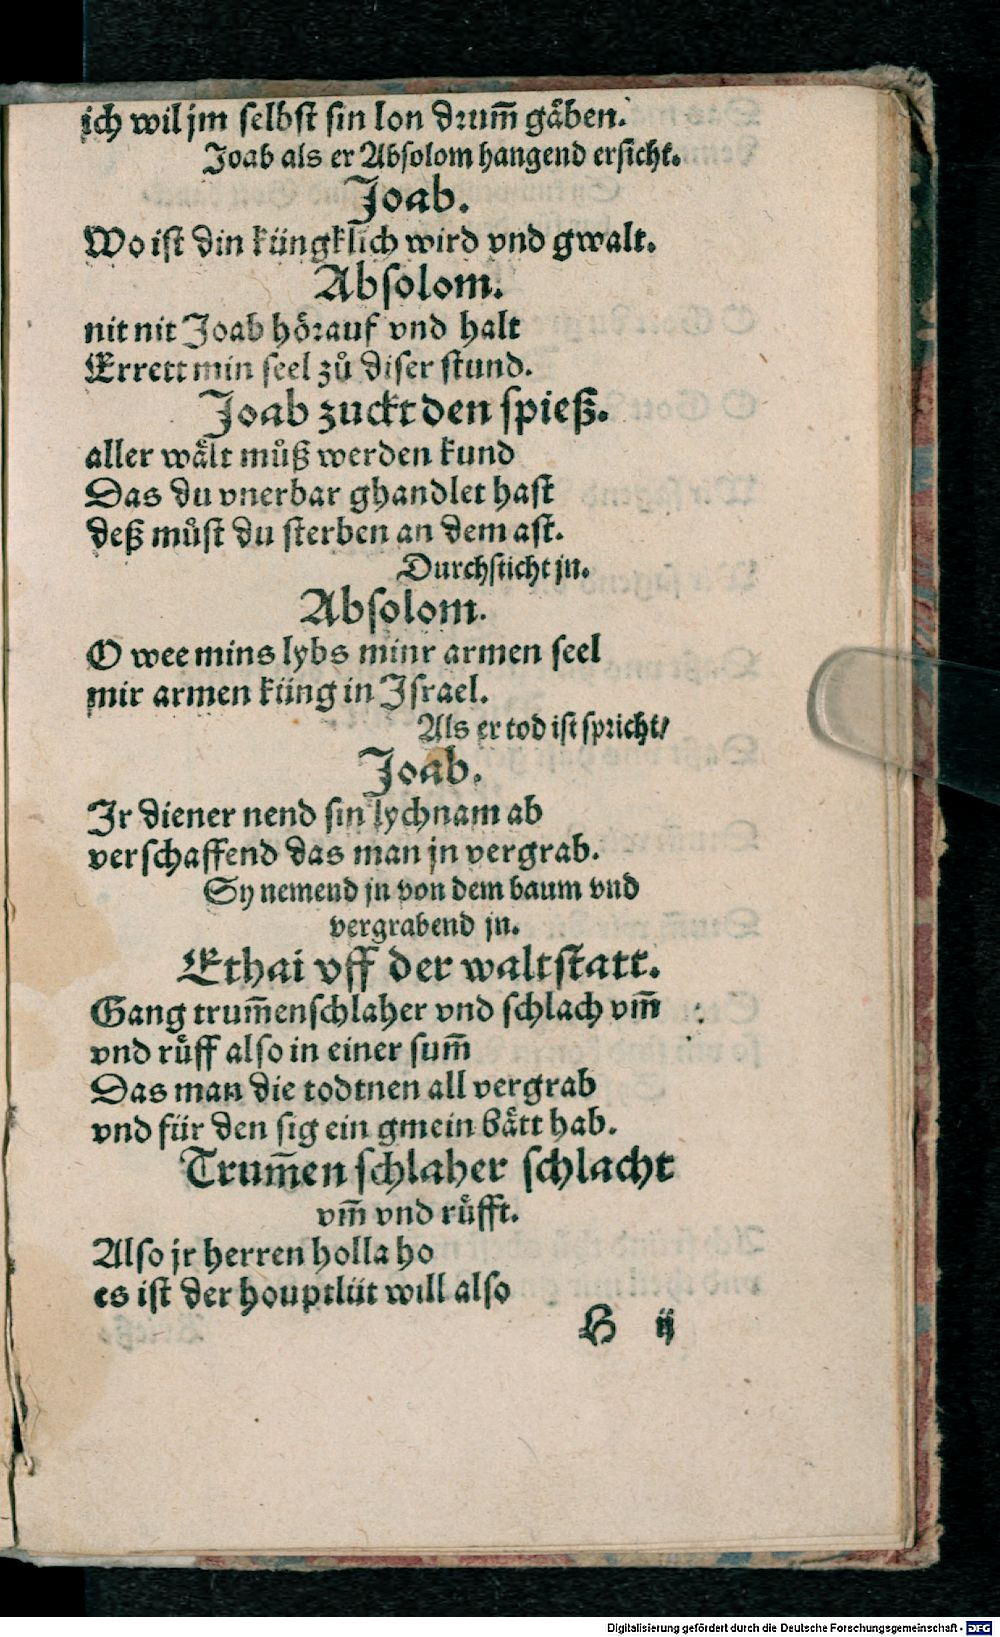 ich wil jm selbst sin lon drum̃ gaͤben.
Joab als er Absolom hangend ersicht.
Joab.
Wo ist din küngklich wird vnd gwalt.
Absolom.
nit nit Joab hoͤr auf vnd halt
Errett min seel zů diser stund.
Joab zuckt den spieß.
aller waͤlt můß werden kund
Das du vnerbar ghandlet hast
deß můst du sterben an dem ast.
Durchsticht jn.
Absolom.
O wee mins lybs minr armen seel
mir armen küng in Jsrael.
Als er tod ist spricht/
Joab.
Jr diener nend sin lychnam ab
verschaffend das man jn vergrab.
Sy nemend jn von dem baum vnd
vergrabend jn.
Ethai vff der waltstatt.
Gang trum̃enschlaher vnd schlach vm̃
vnd ruͤff also in einer sum̃
Das man die todtnen all vergrab
vnd für den sig ein gmein baͤtt hab.
Trum̃enschlaher schlacht
vm̃ vnd ruͤfft.
Also jr herren holla ho
es ist der houptlüt will also
H ij
Digitalisierung gefördert durch die Deutsche Forschungsgemeinschaft - DFG